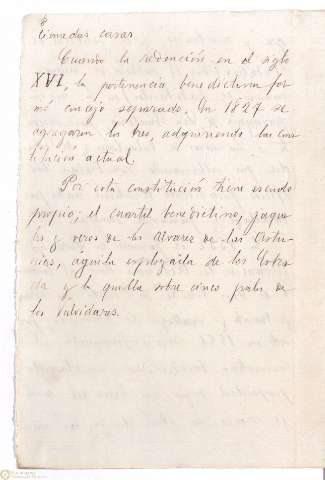 8
timadas casas
Cuando la redención en el siglo
XVI, la pertenencia benedictina for
mó concejo separado. En 1827 se
agregaron los tres, adquiriendo la cons
titución actual.
Por esta constitución tiene escudo
propio; el cuartel benedictino, jaque
les y veros de los Alvarez de las Astu
rias, aguila explayada de los Estra
da y la quilla sobre cinco palos de
los